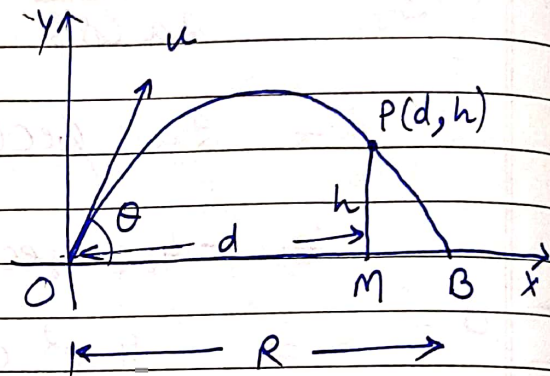 Y
u
P(d, h)
θ
d
h
O
M
B
X
R